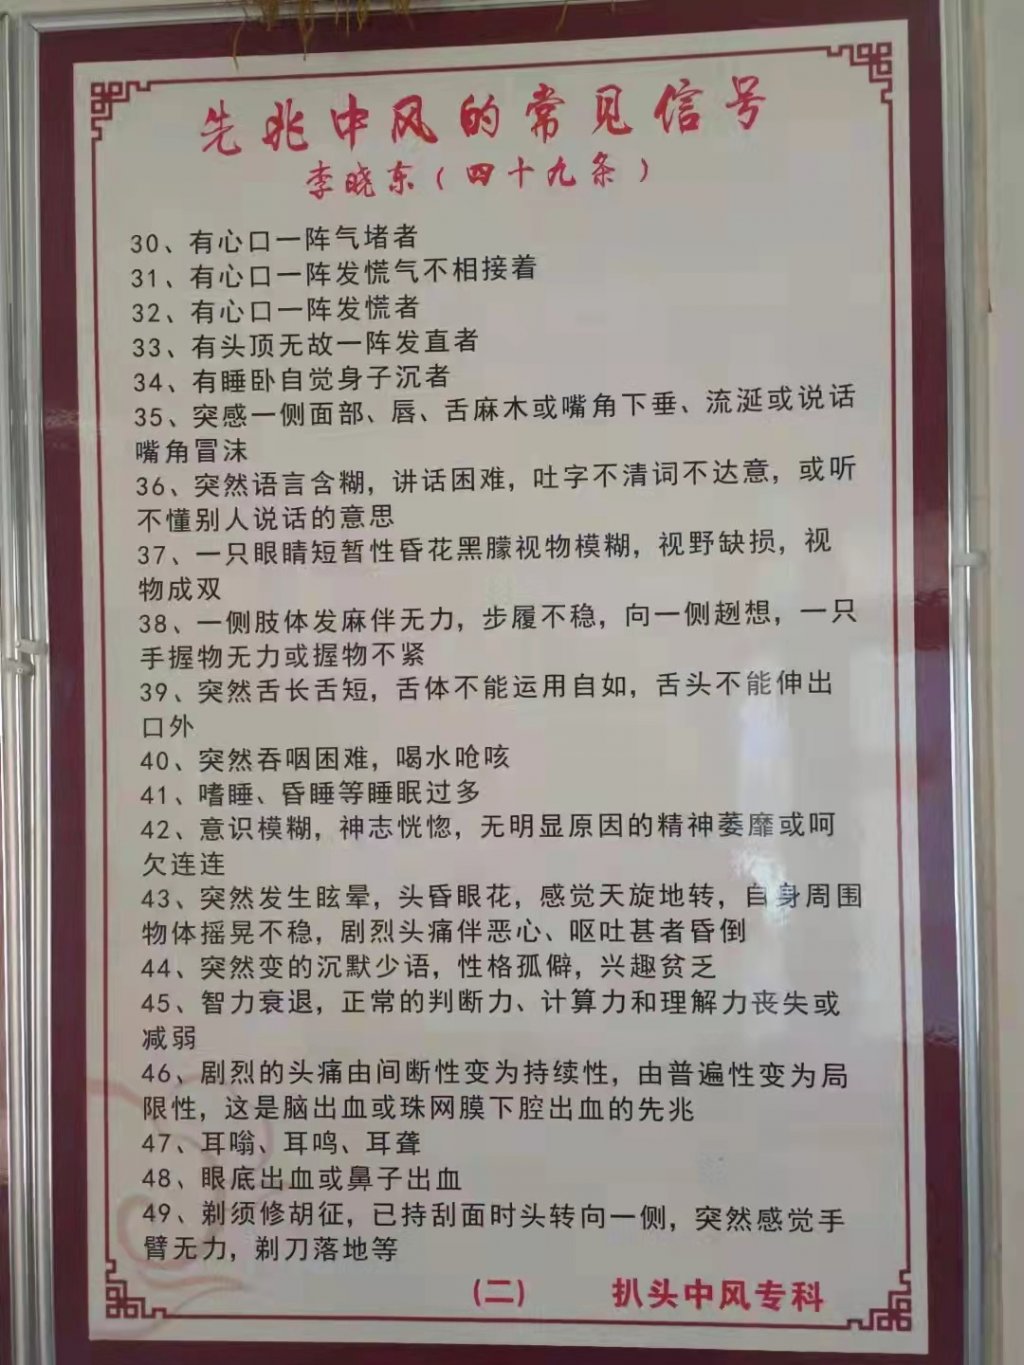 先兆中风的常见信号
李晓东(四十九条)
30、有心口一阵气堵者
31、有心口一阵发慌气不相接着
32、有心口一阵发慌者
33、有头顶无故一阵发直者
34、有睡卧自觉身子沉者
35、突感一侧面部、唇、舌麻木或嘴角下垂、流涎或说话
嘴角冒沫
36、突然语言含糊，讲话困难，吐字不清词不达意，或听
不懂别人说话的意思
37、一只眼睛短暂性昏花黑朦视物模糊，视野缺损，视
物成双
38、一侧肢体发麻伴无力，步履不稳，向一侧趔想，一只
手握物无力或握物不紧
39、突然舌长舌短，舌体不能运用自如，舌头不能伸出
口外
40、突然吞咽困难，喝水呛咳
41、嗜睡、昏睡等睡眠过多
42、意识模糊，神志恍惚，无明显原因的精神萎靡或呵
欠连连
43、突然发生眩晕，头昏眼花，感觉天旋地转，自身周围
物体摇晃不稳，剧烈头痛伴恶心、呕吐甚者昏倒
44、突然变的沉默少语，性格孤僻，兴趣贫乏
45、智力衰退，正常的判断力、计算力和理解力丧失或
减弱
46、剧烈的头痛由间断性变为持续性，由普遍性变为局
限性，这是脑出血或珠网膜下腔出血的先兆
47、耳嗡、耳鸣、耳聋
48、眼底出血或鼻子出血
49、剃须修胡征，已持刮面时头转向一侧，突然感觉手
臂无力，剃刀落地等
(二) 扒头中风专科